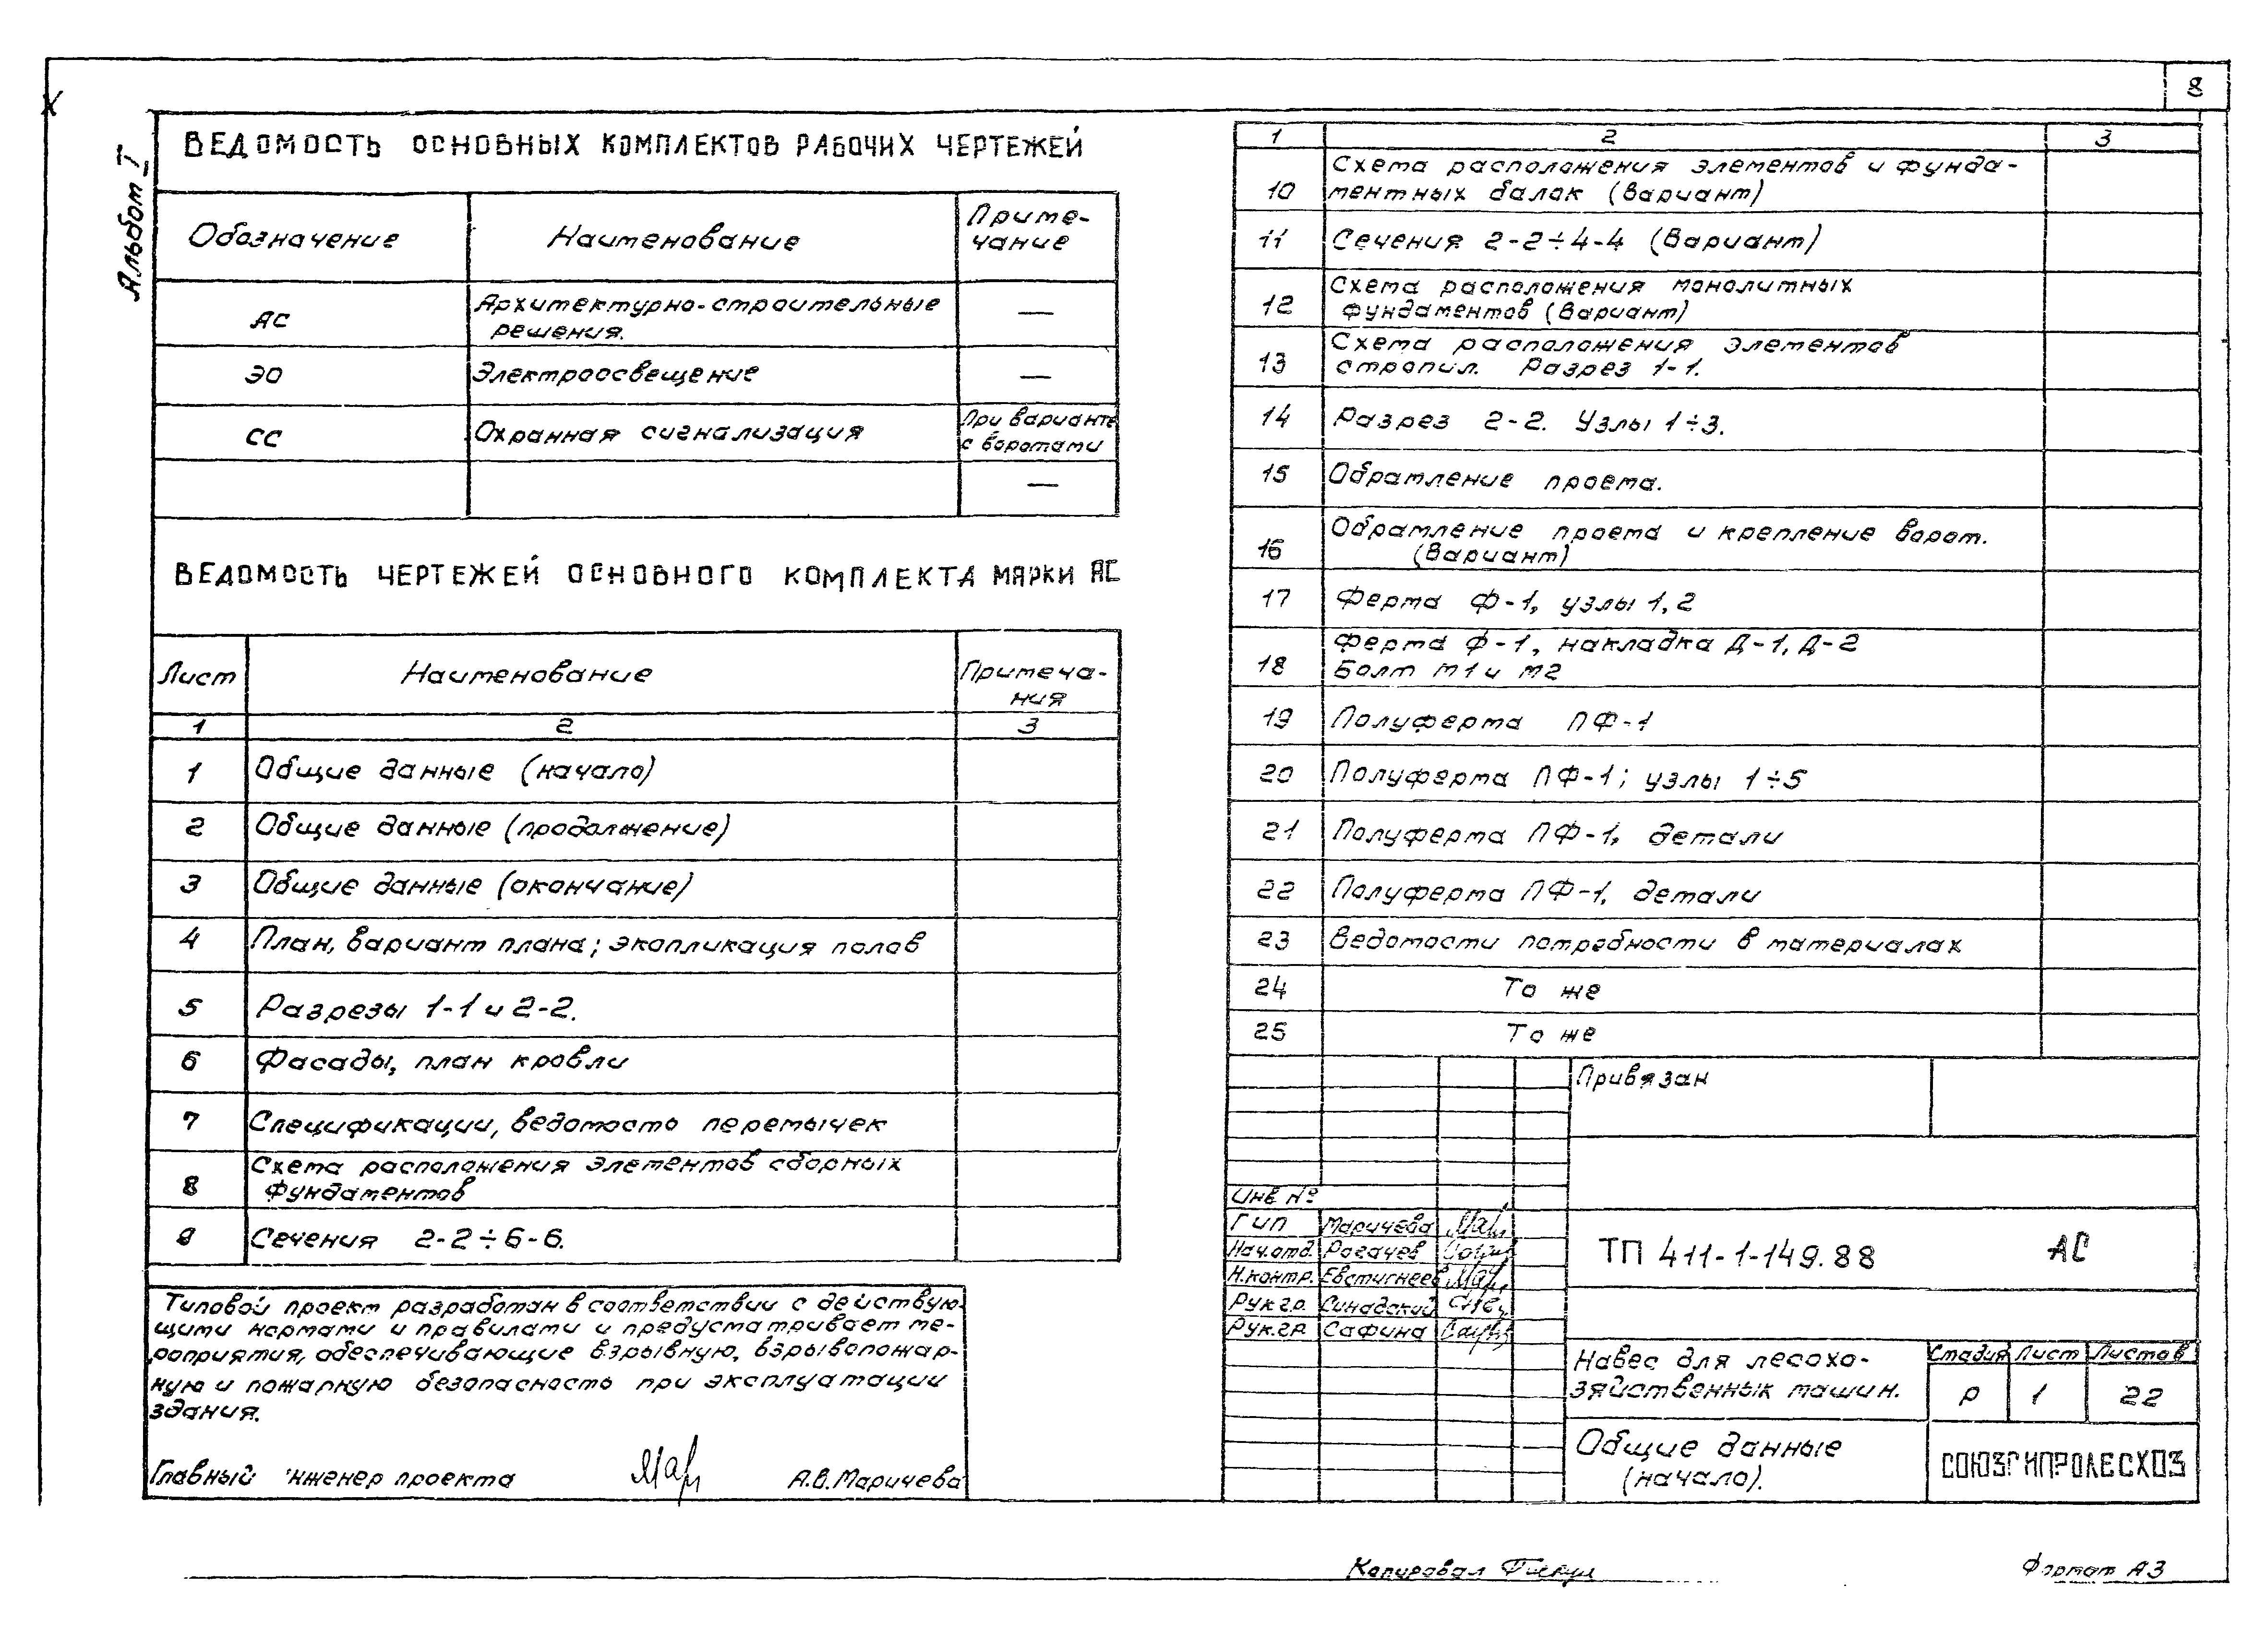 8
Альбом I
ВЕДОМОСТЬ ОСНОВНЫХ КОМПЛЕКТОВ РАБОЧИХ ЧЕРТЕЖЕЙ
Обозначение Наименование Приме-
чание
АС Архитектурно-строительные
решения. —
ЭО Электроосвещение —
СС Охранная сигнализация При варианте
с воротами
—
ВЕДОМОСТЬ ЧЕРТЕЖЕЙ ОСНОВНОГО КОМПЛЕКТА МАРКИ АС
Лист Наименование Примеча-
ния
1 2 3
1 Общие данные (начало)
2 Общие данные (продолжение)
3 Общие данные (окончание)
4 План, вариант плана; экопликация полов
5 Разрезы 1-1 и 2-2.
6 Фасады, план кровли
7 Спецификации, ведомость перемычек
8 Схема расположения элементов сборных
фундаментов
9 Сечения 2-2÷6-6.
Типовой проект разработан в соответствии с действую-
щими нормами и правилами и предусматривает ме-
роприятия, обеспечивающие взрывную, взрывопожар-
ную и пожарную безопасность при эксплуатации
здания.
Главный инженер проекта А.В.Маричева
1 2 3
10 Схема расположения элементов и фунда-
ментных балок (вариант)
11 Сечения 2-2÷4-4 (Вариант)
12 Схема расположения монолитных
фундаментов (Вариант)
13 Схема расположения элементов
стропил. Разрез 1-1.
14 Разрез 2-2. Узлы 1÷3.
15 Обрамление проема.
16 Обрамление проема и крепление ворот.
(Вариант)
17 Ферма Ф-1, узлы 1,2
18 Ферма Ф-1, накладка Д-1, Д-2
Болт М1 и М2
19 Полуферма ПФ-1
20 Полуферма ПФ-1; узлы 1÷5
21 Полуферма ПФ-1, детали
22 Полуферма ПФ-1, детали
23 Ведомости потребности в материалах
24 То же
25 То же
Привязан
Инв №
ГИП Маричева
Нач.отд. Рогачев
Н.контр. Евстигнеев
Рук.гр. Синадский
Рук.гр. Сафина
ТП 411-1-149.88 АС
Навес для лесохо-
зяйственных машин.
Стадия Лист Листов
Р 1 22
Общие данные
(начало).
СОЮЗГИПРОЛЕСХОЗ
Копировал
Формат А3